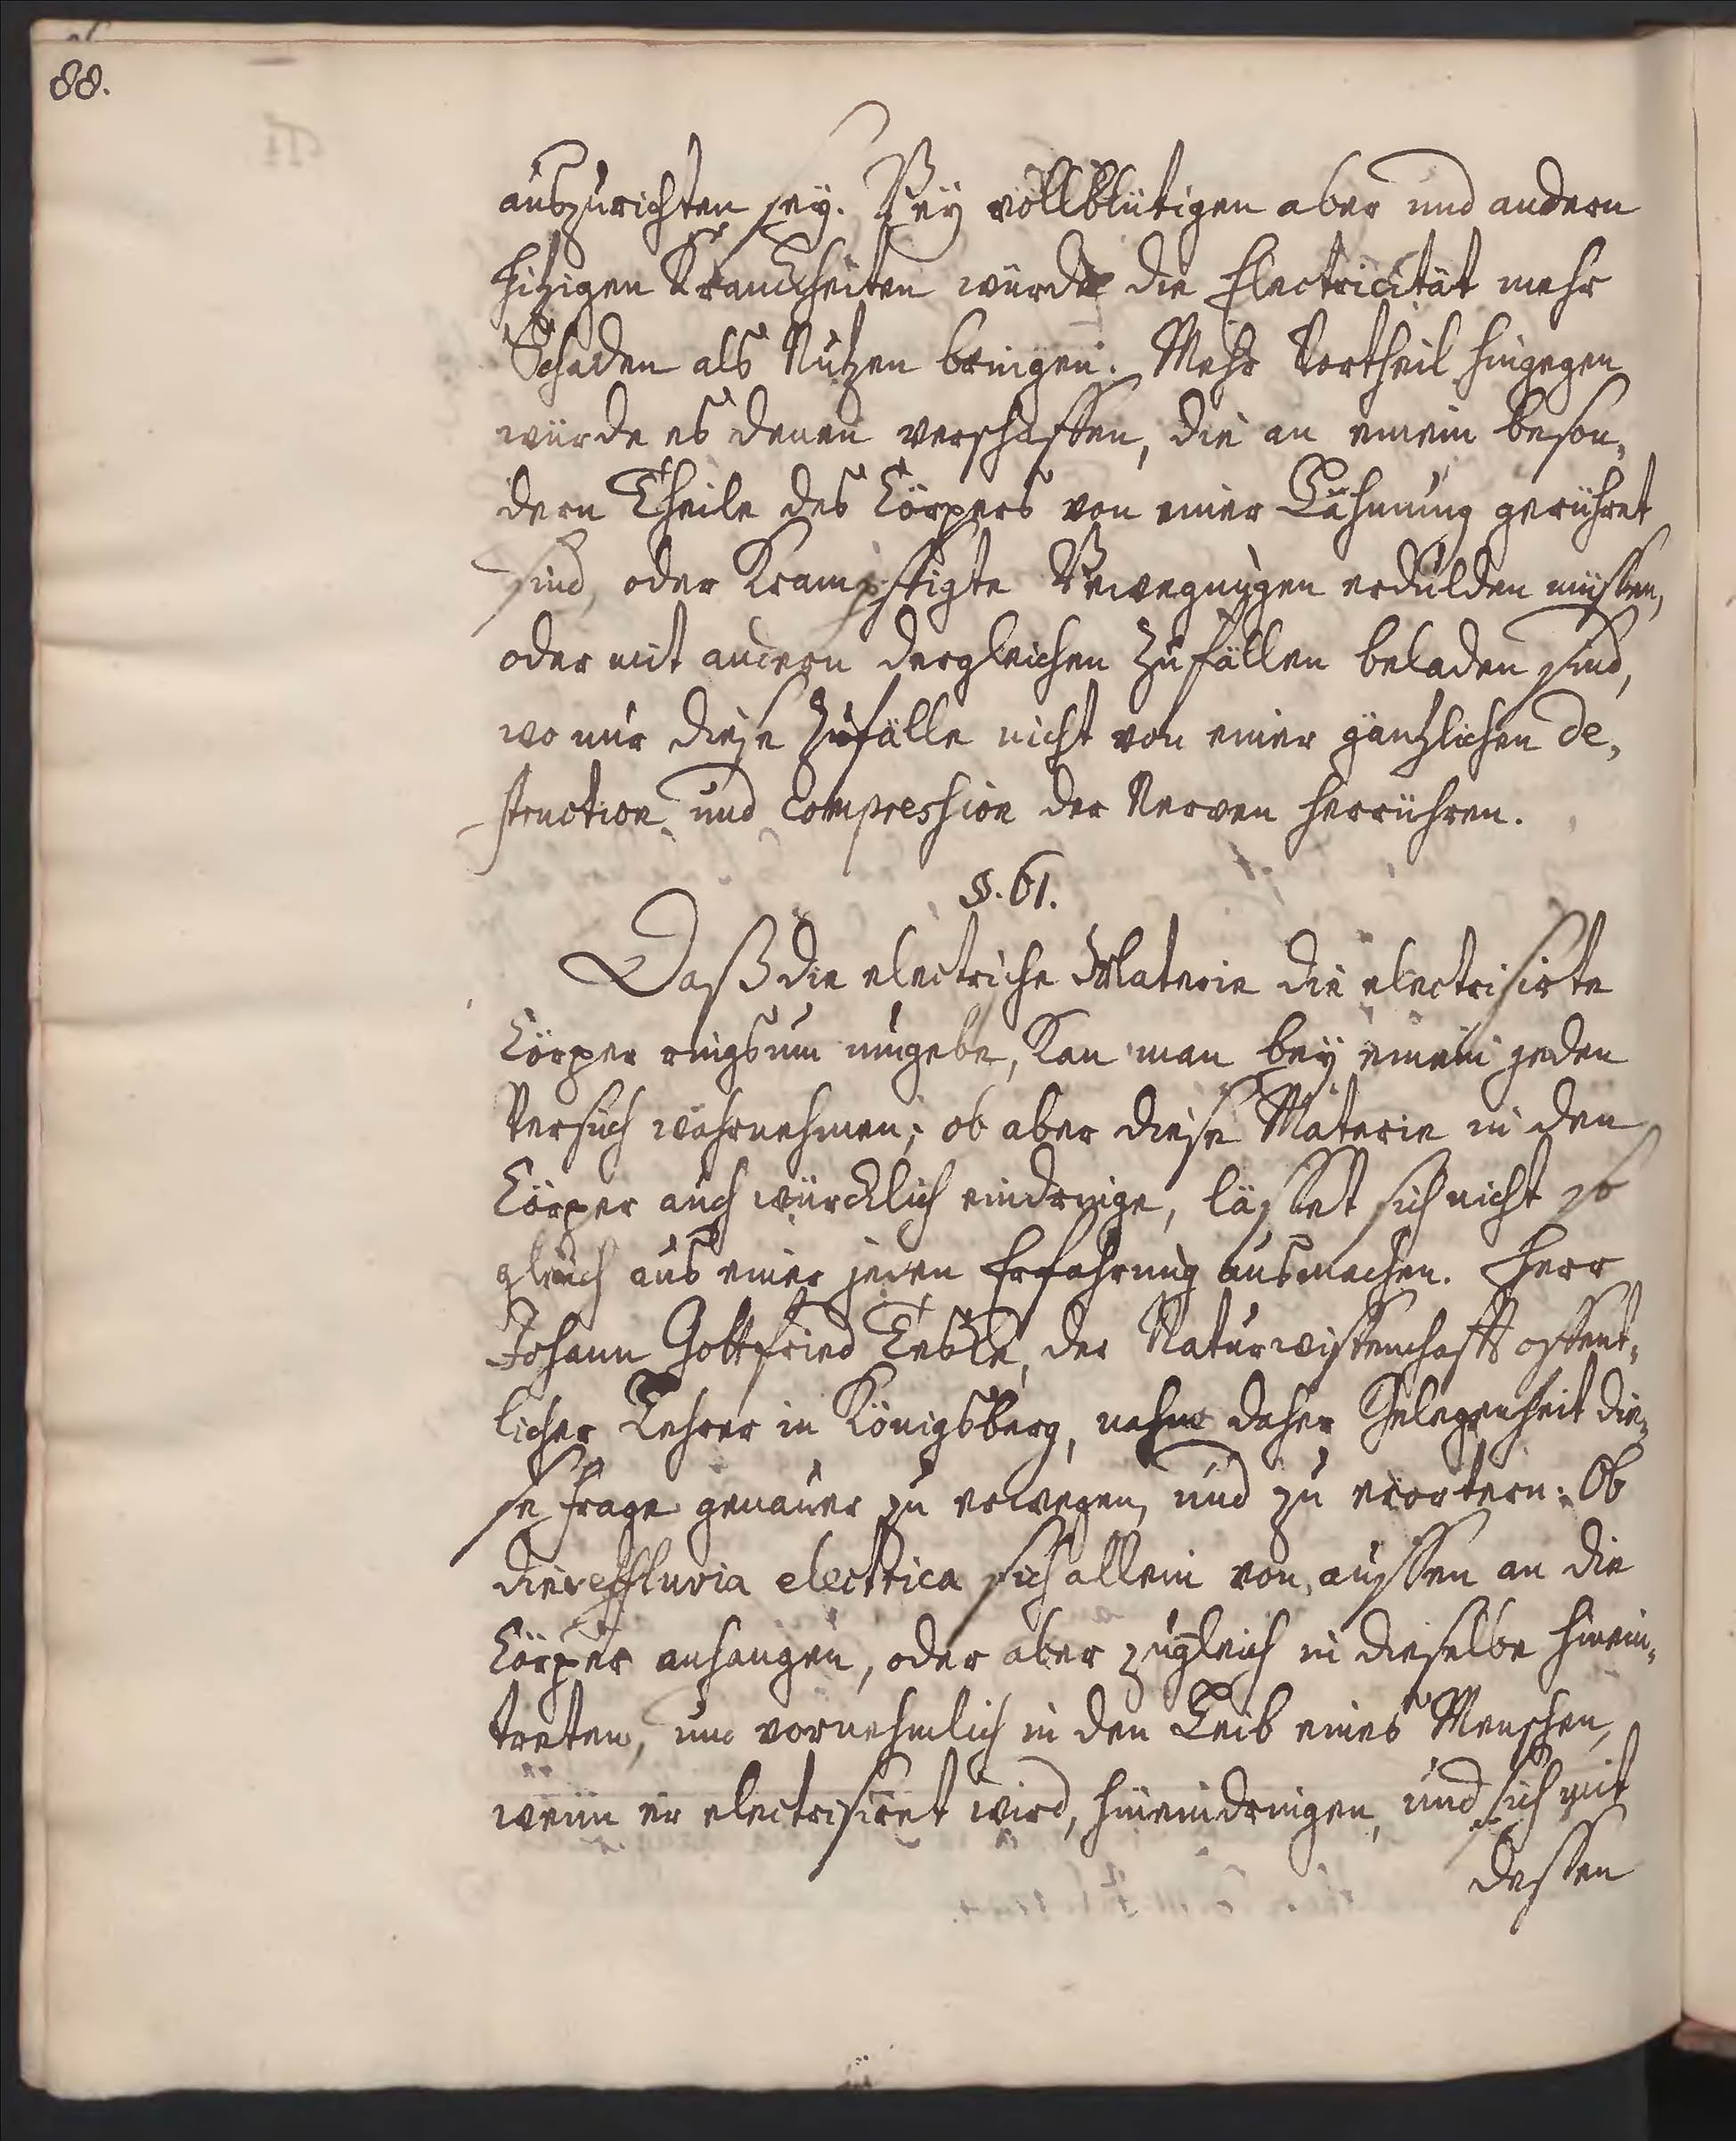 88.
auszurichten sey. Bey vollblütigen aber und andern
hitzigen Kranckheiten würde die Electricität mehr
Schaden als Nutzen bringen. Mehr Vortheil hingegen
würde es denen verschaffen, die an einem beson„
dern Theile des Cörpers von einer Lähmung gerühret
sind, oder Krampffigte Bewegungen erdulden müssen,
oder mit andern dergleichen Zufällen beladen sind,
wo nur diese Zufälle nicht von einer gäntzlichen de„
struction und compression der Nerven herrühren.
§. 61.
Daß die electrische Materie die electrisirte
Cörper ringsum umgebe, kan man bey einem jeden
Versuch wahrnehmen; ob aber diese Materie in den
Cörper auch würcklich eindringe, lässet sich nicht so
gleich aus einer jeden Erfahrung ausmachen. Herr
Johann Gottfried Teske, der Naturwissenschafft offent„
licher Lehrer in Königsberg, nahm daher Gelegenheit die„
se Frage genauer zu erwegen, und zu erörtern: Ob
die effluvia electrica sich allein von aussen an die
Cörper anhangen, oder aber zugleich in dieselbe hinein„
treten, und vornehmlich in den Leib eines Menschen,
wenn er electrisiret wird, hineindringen, und sich mit
dessen